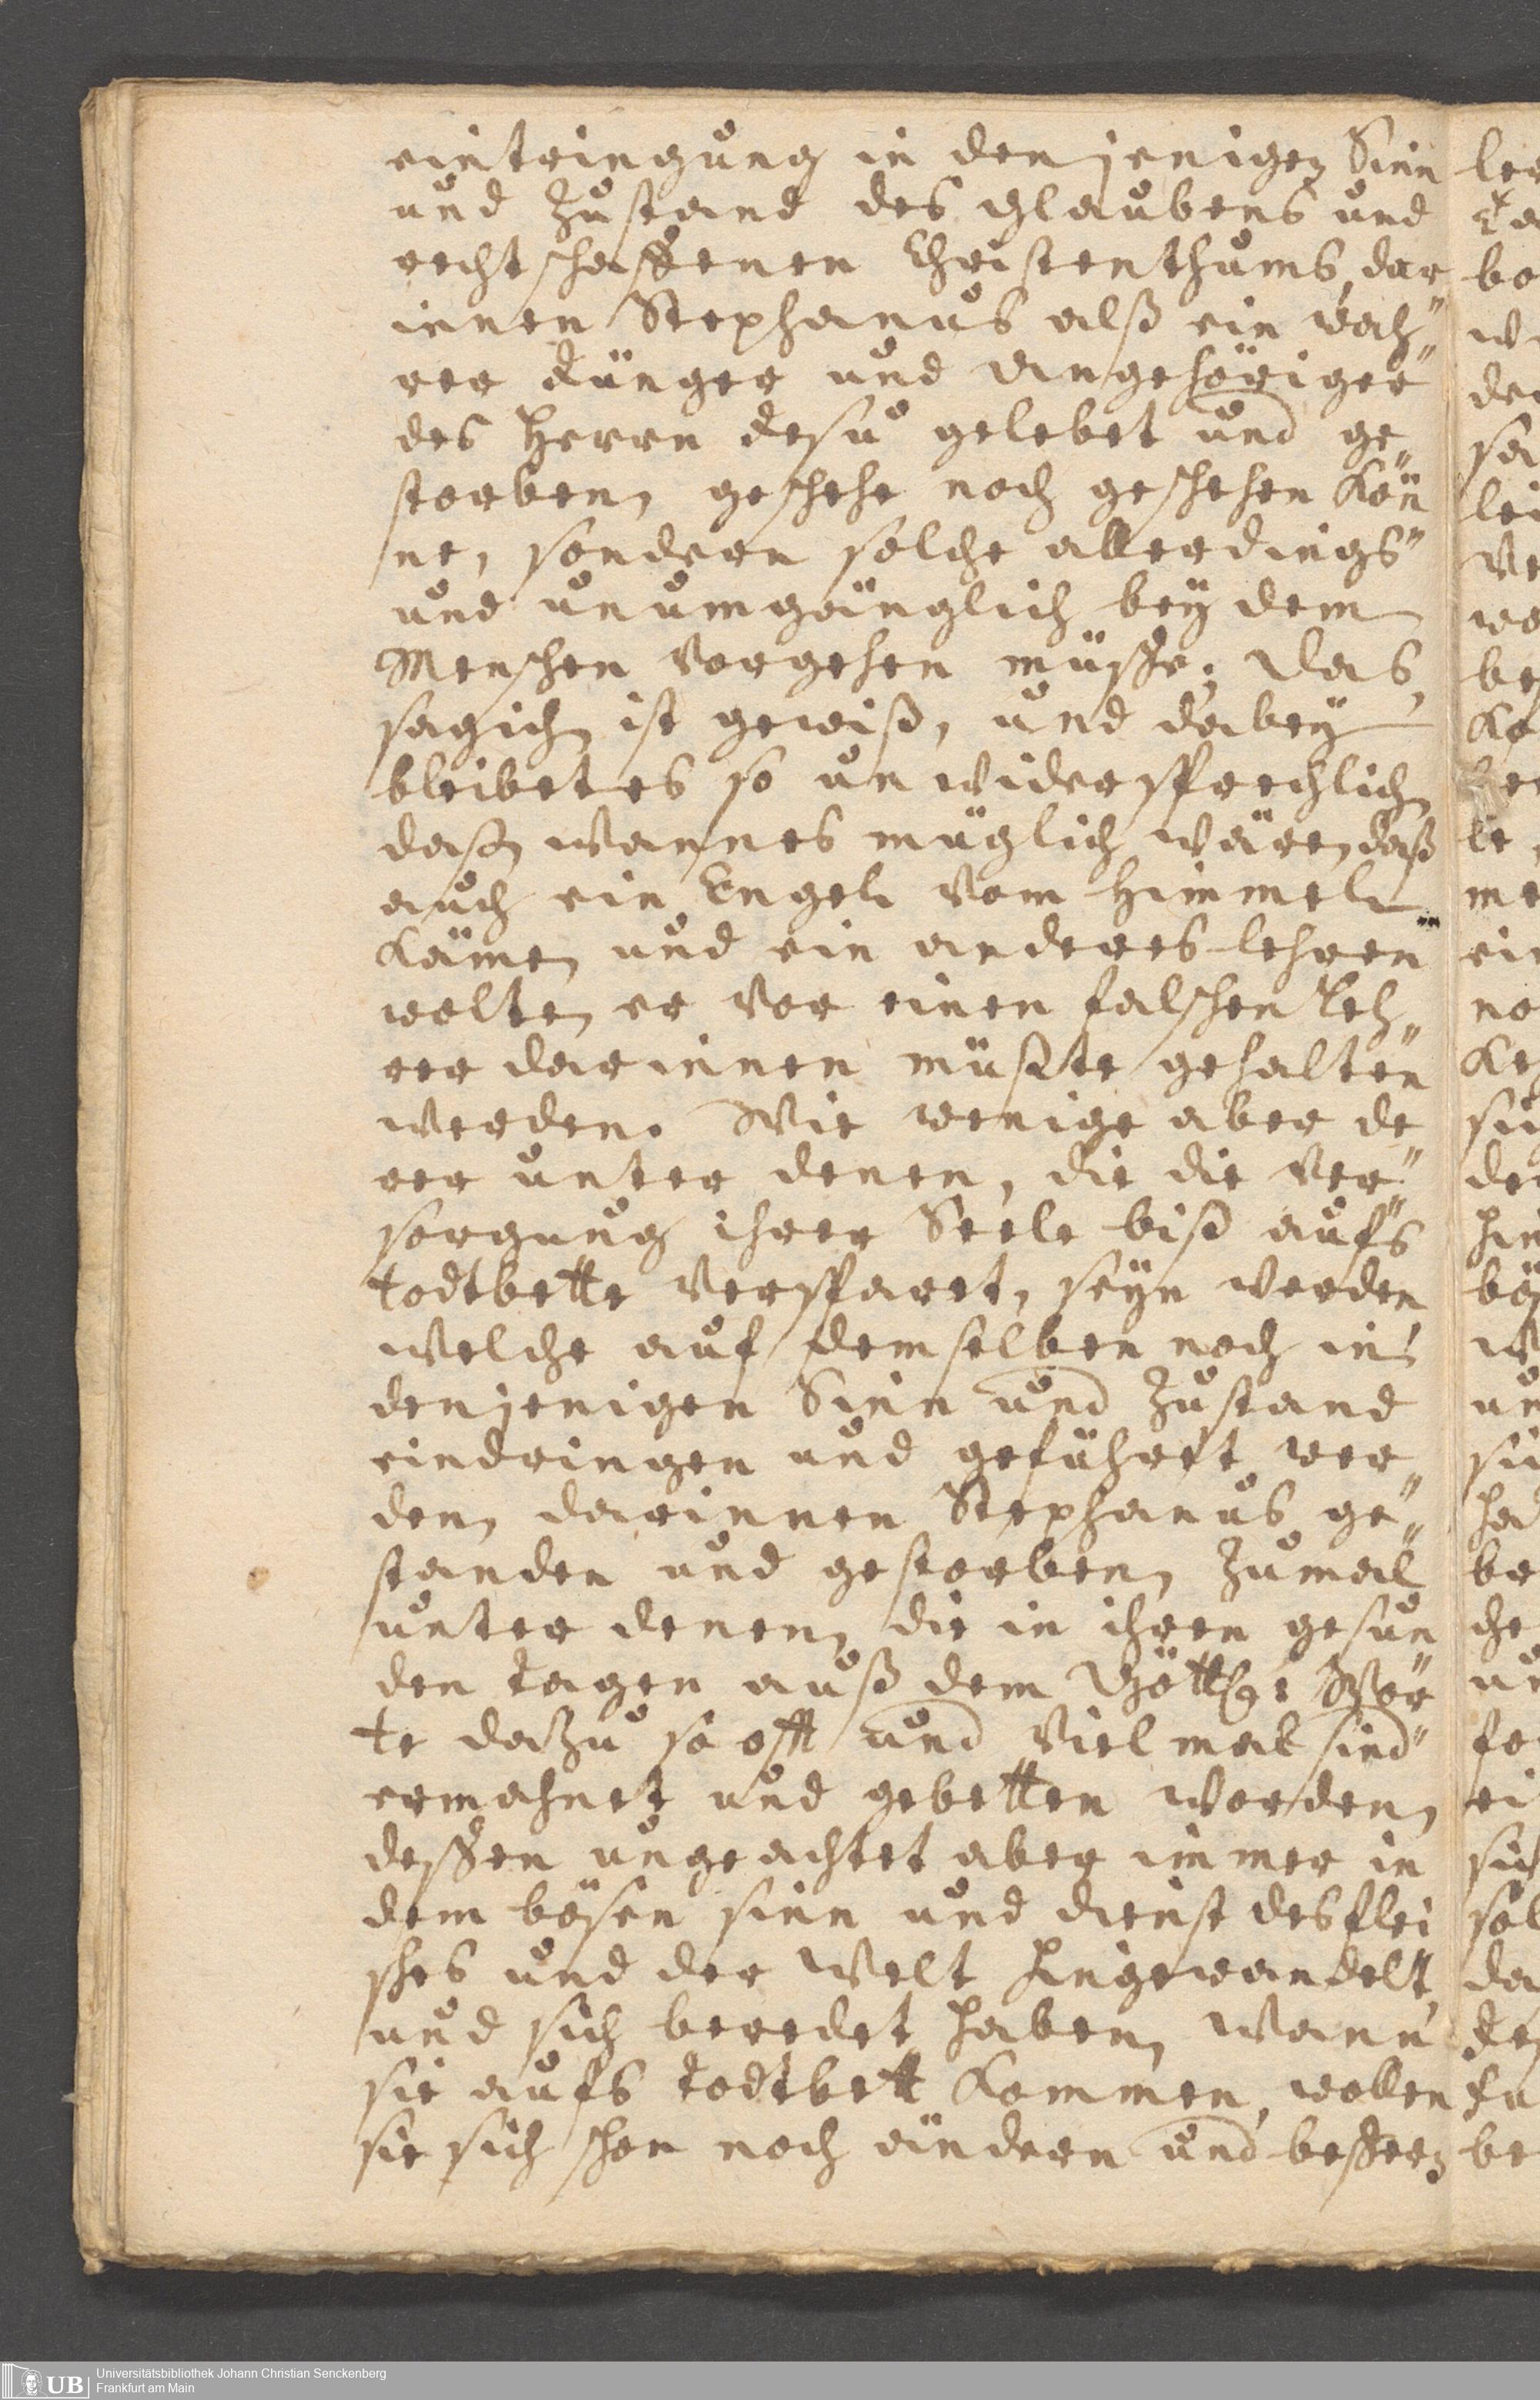 eintringung in denjenigen Sinn
und Zustand des Glaubens und
rechtschaffenen Christenthums, dar
innen Stephanus alß ein wah„
rer Jünger und angehöriger
des Herrn Jesu gelebet und ge„
storben, geschehe noch geschehen kön
ne, sondern solche allerdings
und unumgänglich bey dem
Menschen vorgehen müsse; Das,
sag ich, ist gewiß, und dabey
bleibet es so unwidersprechlich,
daß, wann es müglich wäre, daß
auch ein Engel vom Himmel
käme, und ein anderes lehren
wolte, er vor einen falschen Leh„
rer darinnen müste gehalten
werden. Wie wenige aber de
rer unter denen, die die Ver„
sorgung ihrer Seele biß aufs
todtbette versparet, seyn werden
welche auf demselben noch in
denjenigen Sinn und Zustand
eindringen und geführet wer„
den, darinnen Stephanus ge„
standen und gestorben, Zumal
unter denen, die in ihren gesun
den tagen auß dem Göttl: Wor
te dazu so offt und vielmal sind
ermahnet und gebetten worden,
dessen ungeachtet aber immer in
dem bösen sinn und dienst des flei
sches und der Welt hingewandelt,
und sich beredet haben, wann
sie aufs todtbett kommen, wollen
sie sich schon noch ändern und bessern
Universitätsbibliothek Johann Christian Senckenberg
Frankfurt am Main
UB